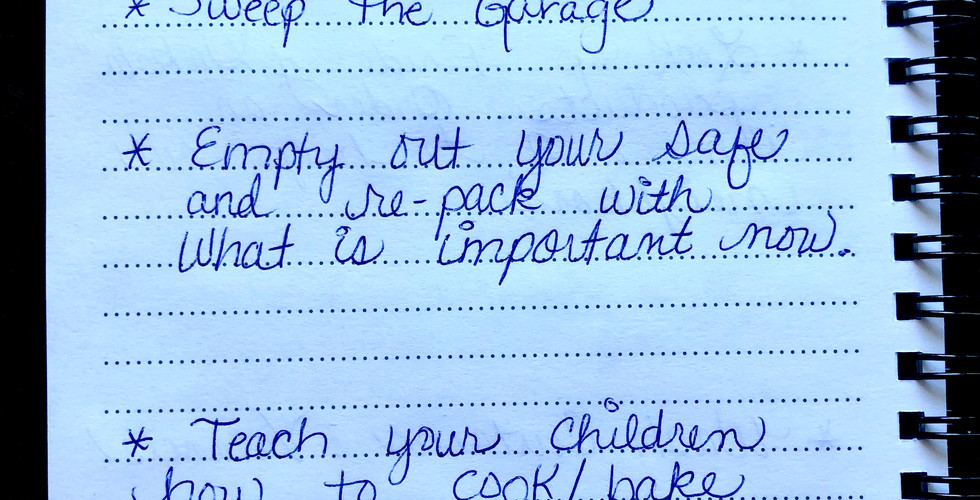 * Sweep the Garage
* Empty out your safe
and re-pack with
What is important now.
* Teach your children
how to cook/bake